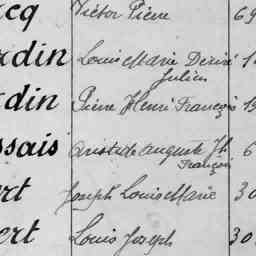 cq Victor Pierre 69
rdin Louis Marie Désiré 1
Julien
rdin Pierre Henri François 19
ssais Aristide Auguste Jh 6
François
ert Joseph Louis Marie 30
ert Louis Joseph 30